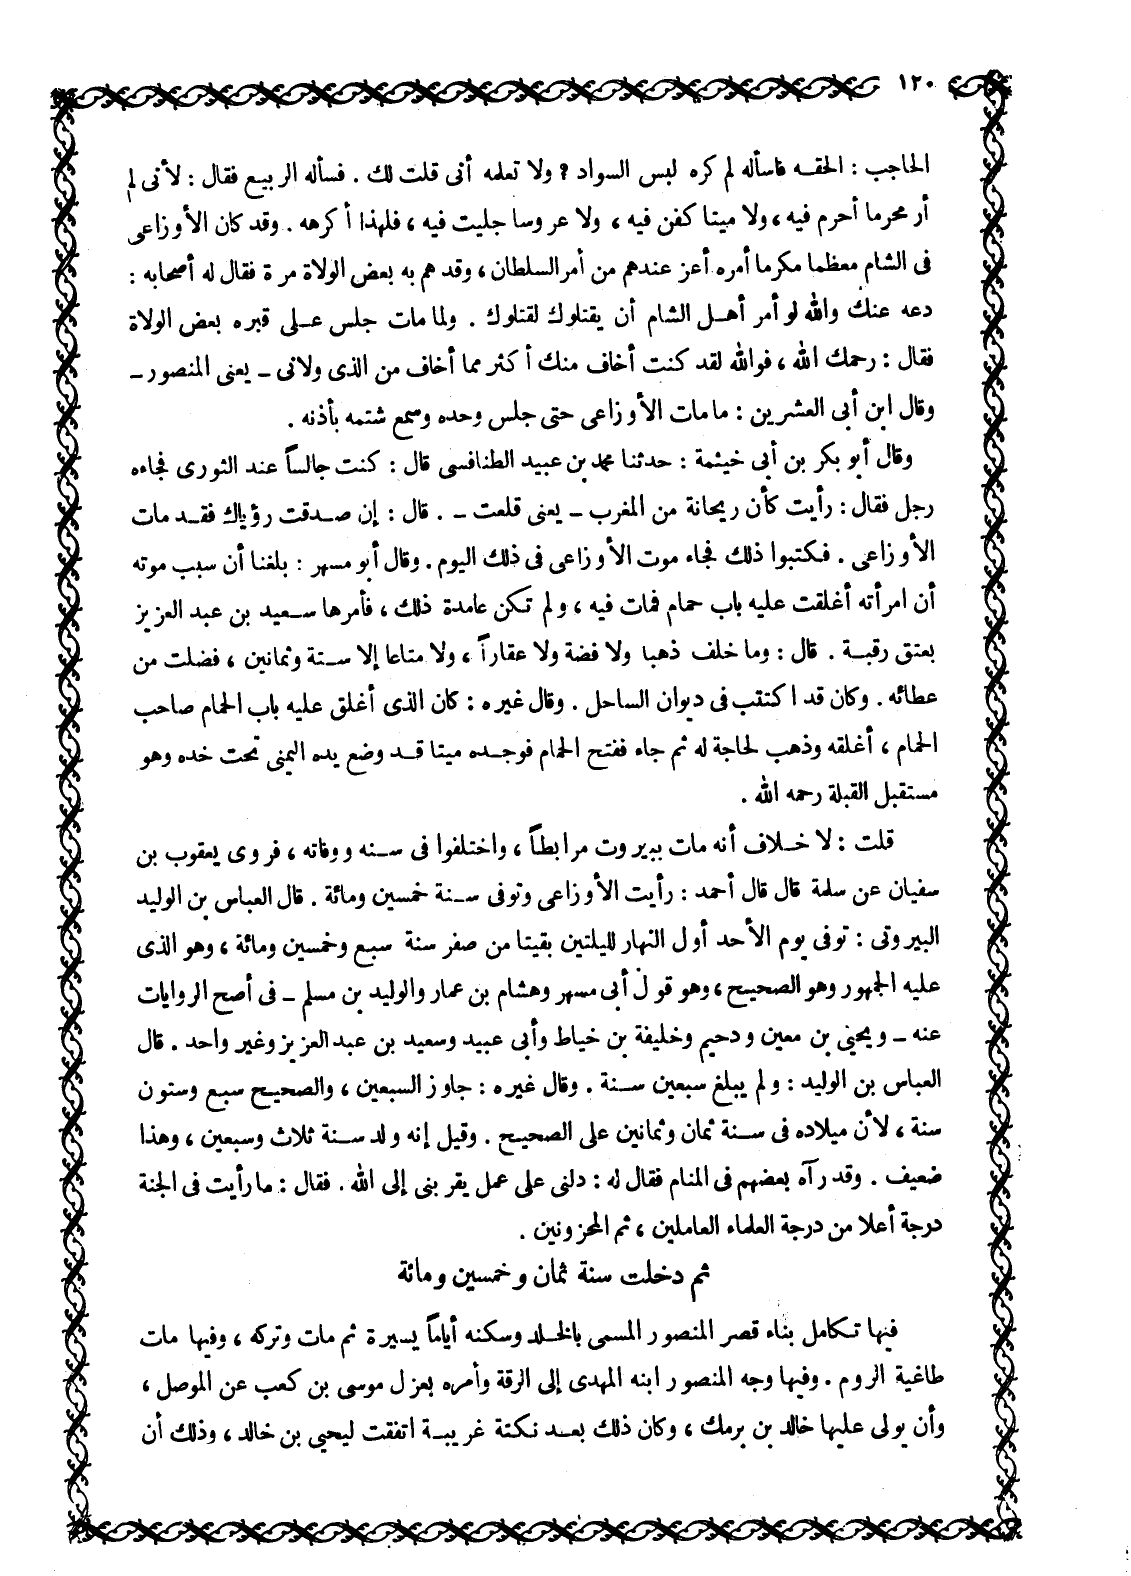 ١٢٠
الحاجب : الحقه فاسأله لم كره لبس السواد ؟ ولا تعلمه أنى قلت لك . فسأله الربيع فقال : لأنى لم
أر محرما أحرم فيه ، ولا ميتا كفن فيه ، ولا عروسا جليت فيه ، فلهذا أكرهه . وقد كان الأوزاعى
فى الشام معظما مكرما أمره أعز عندهم من أمر السلطان ، وقد هم به بعض الولاة مرة فقال له أصحابه :
دعه عنك والله لو أمر أهل الشام أن يقتلوك لقتلوك . ولما مات جلس على قبره بعض الولاة
فقال : رحمك الله ، فوالله لقد كنت أخاف منك أكثر مما أخاف من الذى ولانى ـ يعنى المنصور ـ
وقال ابن أبى العشرين : ما مات الأوزاعى حتى جلس وحده وسمع شتمه بأذنه .
وقال أبو بكر بن أبى خيثمة : حدثنا محمد بن عبيد الطنافسى قال : كنت جالساً عند الثورى فجاءه
رجل فقال : رأيت كأن ريحانة من المغرب ـ يعنى قلعت ـ . قال : إن صدقت رؤياك فقد مات
الأوزاعى . فكتبوا ذلك فجاء موت الأوزاعى فى ذلك اليوم . وقال أبو مسهر : بلغنا أن سبب موته
أن امرأته أغلقت عليه باب حمام فمات فيه ، ولم تكن عامدة ذلك ، فأمرها سعيد بن عبد العزيز
بعتق رقبة . قال : وما خلف ذهبا ولا فضة ولا عقاراً ، ولا متاعا إلا ستة وثمانين ، فضلت من
عطائه . وكان قد اكتتب فى ديوان الساحل . وقال غيره : كان الذى أغلق عليه باب الحمام صاحب
الحمام ، أغلقه وذهب لحاجة له ثم جاء ففتح الحمام فوجده ميتا قد وضع يده اليمنى تحت خده وهو
مستقبل القبلة رحمه الله .
قلت : لا خلاف أنه مات ببيروت مرابطاً ، واختلفوا فى سنه ووفاته ، فروى يعقوب بن
سفيان عن سلمة قال قال أحمد : رأيت الأوزاعى وتوفى سنة خمسين ومائة . قال العباس بن الوليد
البيروتى : توفى يوم الأحد أول النهار لليلتين بقيتا من صفر سنة سبع وخمسين ومائة ، وهو الذى
عليه الجمهور وهو الصحيح ، وهو قول أبى مسهر وهشام بن عمار والوليد بن مسلم ـ فى أصح الروايات
عنه ـ ويحيى بن معين ودحيم وخليفة بن خياط وأبى عبيد وسعيد بن عبد العزيز وغير واحد . قال
العباس بن الوليد : ولم يبلغ سبعين سنة . وقال غيره : جاوز السبعين ، والصحيح سبع وستون
سنة ، لأن ميلاده فى سنة ثمان وثمانين على الصحيح . وقيل إنه ولد سنة ثلاث وسبعين ، وهذا
ضعيف . وقد رآه بعضهم فى المنام فقال له : دلنى على عمل يقربنى إلى الله . فقال : ما رأيت فى الجنة
درجة أعلا من درجة العلماء العاملين ، ثم المحزونين .
ثم دخلت سنة ثمان وخمسين ومائة
فيها تكامل بناء قصر المنصور المسمى بالخلد وسكنه أياماً يسيرة ثم مات وتركه ، وفيها مات
طاغية الروم . وفيها وجه المنصور ابنه المهدى إلى الرقة وأمره بعزل موسى بن كعب عن الموصل ،
وأن يولى عليها خالد بن برمك ، وكان ذلك بعد نكتة غريبة اتفقت ليحيى بن خالد ، وذلك أن